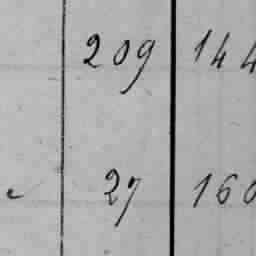 209 144
27 160